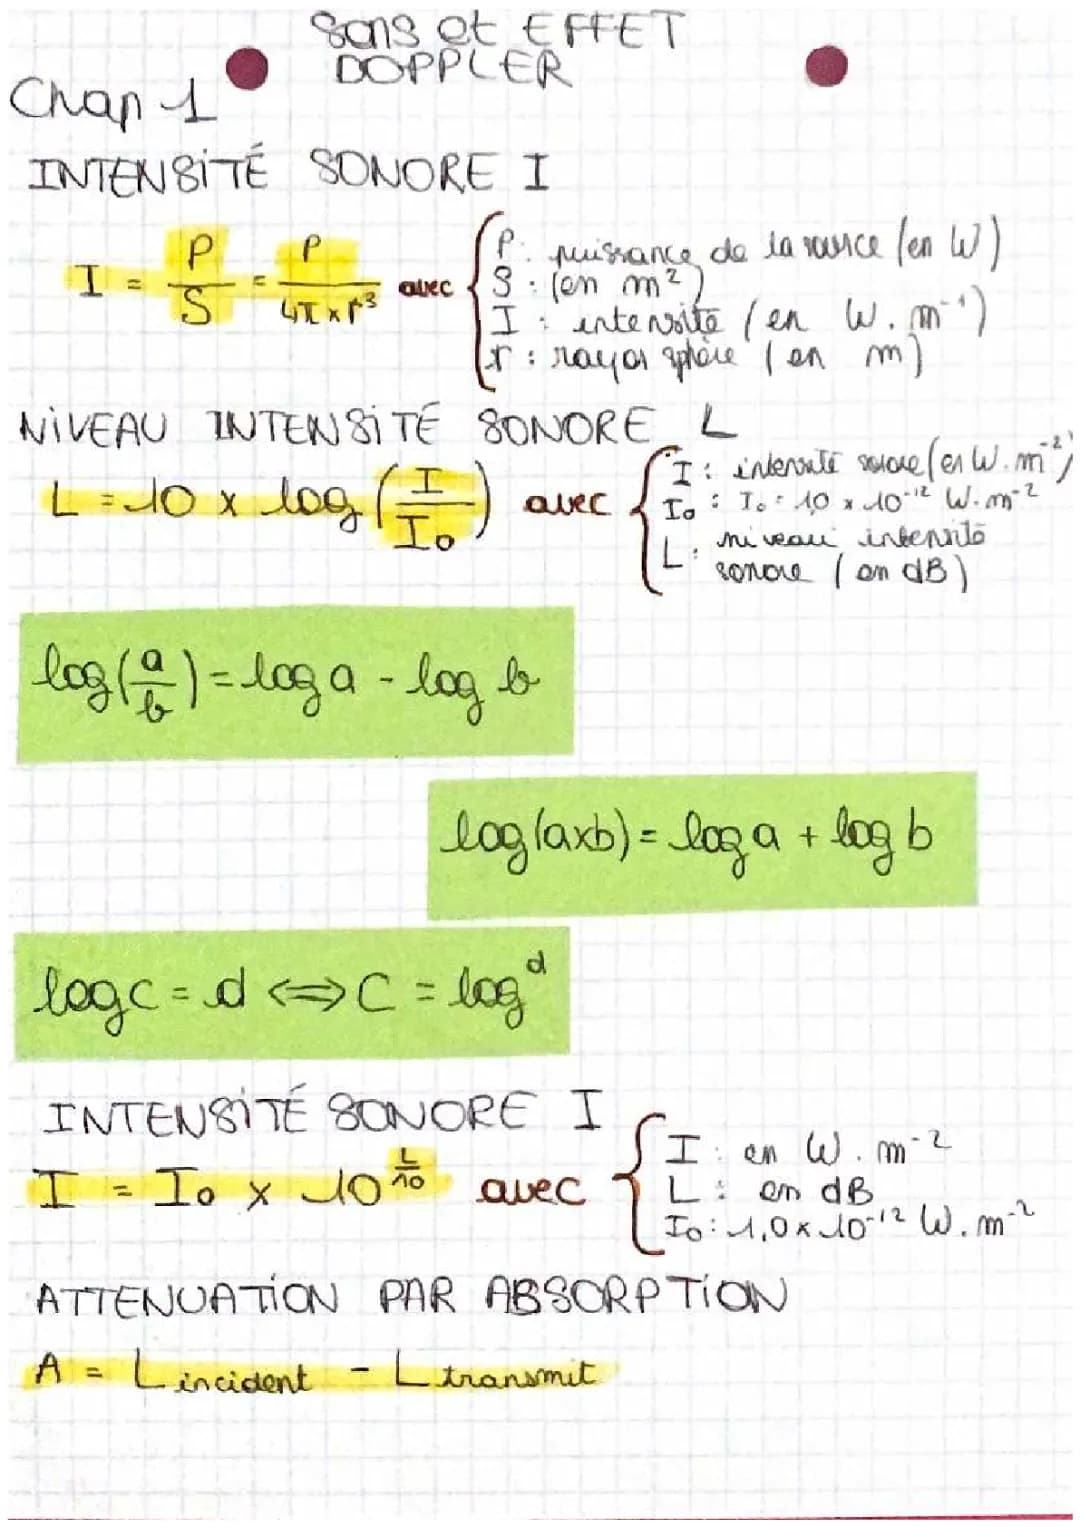 Sons et EFFET
DOPPLER
Chap 1
INTENSITÉ SONORE I
I = P/S = P/(4π × r³) avec
P : puissance de la source (en W)
S : (en m²)
I : intensité (en W.m⁻¹)
r : rayon sphère (en m)
NIVEAU INTENSITÉ SONORE L
L = 10 × log (I/I₀) avec
I : intensité sonore (en W.m⁻²)
I₀ : I₀ = 1,0 × 10⁻¹² W.m⁻²
L : niveau intensité
sonore (en dB)
log(a/b) = log a - log b
log(a×b) = log a + log b
log c = d ⟺ C = log^d
INTENSITÉ SONORE I
I = I₀ × 10^(L/10) avec
I : en W.m⁻²
L : en dB
I₀ : 1,0 × 10⁻¹² W.m⁻²
ATTENUATION PAR ABSORPTION
A = L incident - L transmit